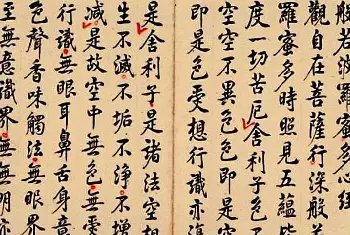 般若波羅蜜多心經
觀自在菩薩行深般
羅蜜多時照見五蘊
度一切苦厄舍利子色
空空不異色色即是
即是色受想行識亦復
是舍利子是諸法空相
生不滅不垢不淨不增
減是故空中無色無受
行識無眼耳鼻舌身意
色聲香味觸法無眼界
至無意識界無無明亦